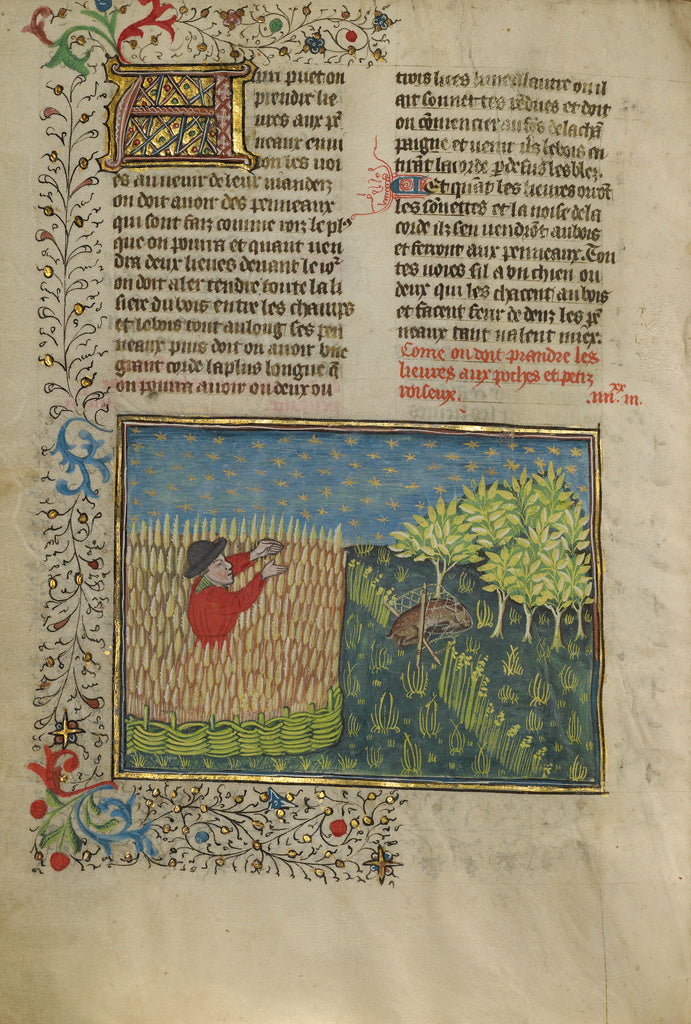 Aussi puet on
prendre lie
ures aux pẽ
neaux enui
ron les uoi
es au uenir de leur mandez
on doit auoir des penneaux
qui sont faiz comme uoiz le plꝰ
que on pourra et quant uen
dra deux lieues deuant le ioʳ
on doit aler tendre toute la li
siere du bois entre les champs
et le bois tout au long ses pen
neaux puis doit on auoir une
grant corde la plus longue q̃
on pourra auoir ou deux ou
trois liees lune a lautre ou il
ait sonnettes pẽdues et doit
on cõmencier au fõs de la chã
paigne et uenir uers le bois en
tirãt la corde par dessus les blez.
Et quãt les lieures orrõt
les sonettes et la noise de la
corde ilz sen uendrõt au bois
et ferront aux penneaux. Tou
tes uoies sil a un chien ou
deux qui les chacent au bois
et facent ferir dedenz les pẽ
neaux tant ualent miex.
Come on doit prandre les
lieures aux poches et petiz
roiseux. .iiii.xx iii.